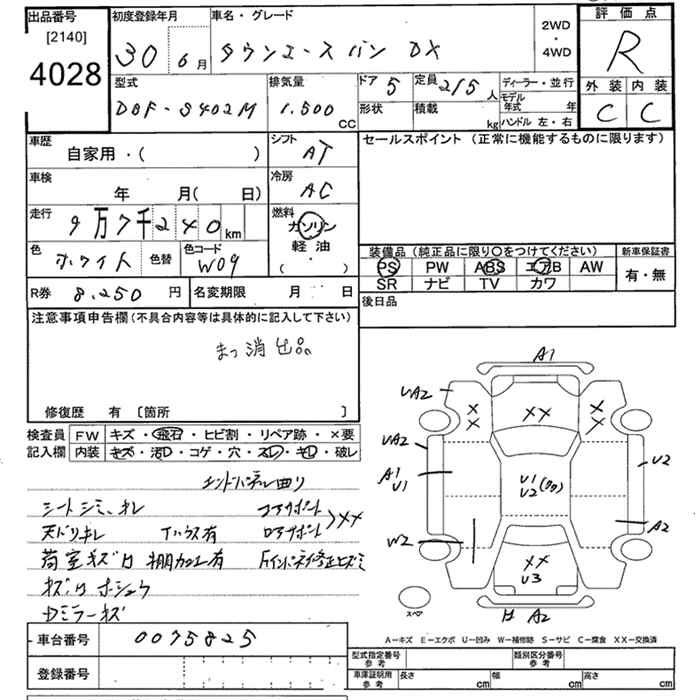 出品番号 初度登録年月 車名・グレード 2WD・4WD 評価点
[2140]
4028
30年 6月 タウンエースバン DX R
型式 排気量 ドア 5 定員 2/5人 ディーラー・並行 外装 内装
DBF-S402M 1.500cc 形状 積載 kg モデル年式 年 C C
ハンドル 左・右
車歴 自家用・( ) シフト AT セールスポイント(正常に機能するものに限ります)
車検 年 月( 日) 冷房 AC
走行 9万7千240km 燃料 ガソリン
軽油
( ・ )
色 ホワイト 色替 色コード W09 装備品(純正品に限り○をつけてください) 新車保証書
PS PW ABS エアB AW 有・無
SR ナビ TV カワ
R券 8.250円 名変期限 月 日 後日品
注意事項申告欄(不具合内容等は具体的に記入して下さい)
まっ消出品
修復歴 有 [箇所 ]
検査員 FW キズ・飛石・ヒビ割・リペア跡・×要
記入欄 内装 キズ・汚レ・コゲ・穴・スレ・キレ・破レ
エンドパネル曲り
シートシミ、キレ コアサポート
天バリキレ ロアサポート >XX
荷室キズ凹 棚加工有
キズ凹ホシュウ
ミラーキズ
車台番号 0075825
登録番号
A1
UA2 XX XX XX
UA2 U2
A1 U1
U1
U2
W2 A2
XX
U3
スペア A2
A-キズ E-エクボ U-凹み W-補修跡 S-サビ C-腐食 XX-交換済
型式指定番号 参考 類別区分番号 参考
車庫証明用 参考 長さ cm 幅 cm 高さ cm